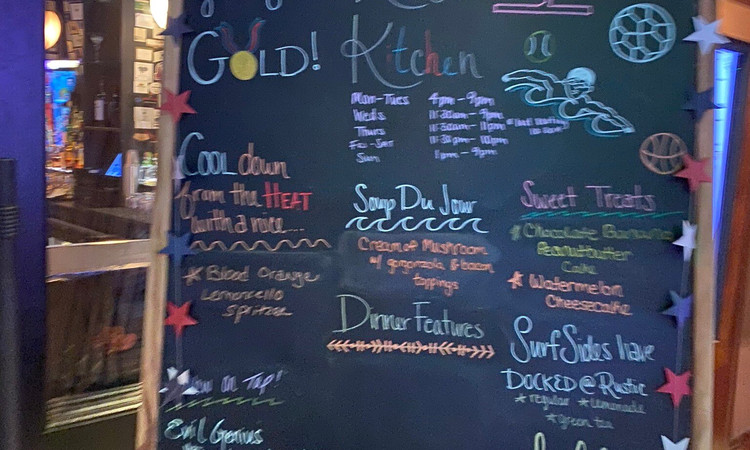 GOLD!
Kitchen
Mon-Tues 4pm-9pm
Weds 11:30am-9pm
Thurs 11:30am-10pm
Fri-Sat 11:30pm-10pm
Sun 1pm-9pm
COOL down
from the HEAT
with a nice...
Blood Orange
Lemoncello
Spritzer
Soup Du Jour
Cream of Mushroom
w/ gorgonzola & bacon
toppings
Dinner Features
Sweet Treats
Chocolate Banana
Peanutbutter
Cake
Watermelon
Cheesecake
SurfSides have
DOCKED @ Rustic
regular Lemonade
green tea
on Tap!
Evil Genius